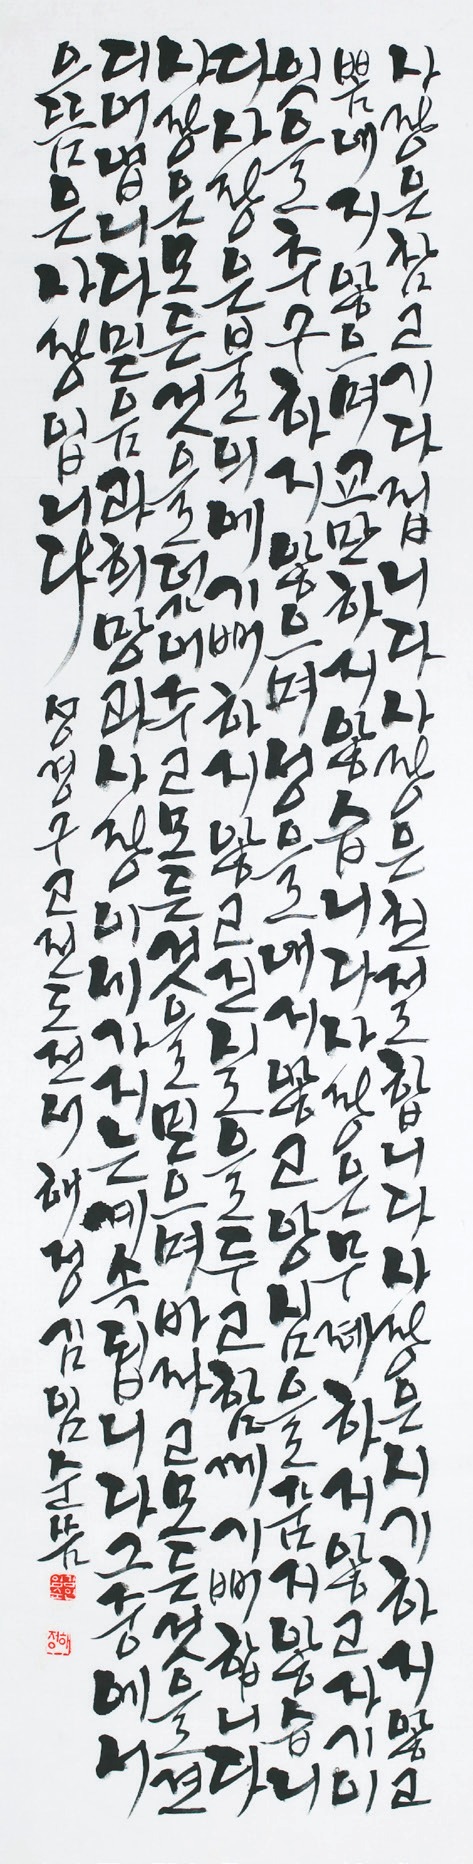 사랑은참고기다립니다사랑은친절합니다사랑은시기하지않고
뽐내지않으며교만하지않습니다사랑은무례하지않고자기이
익을추구하지않으며성을내지않고앙심을품지않습니
다사랑은불의에기뻐하지않고진실을두고함께기뻐합니다
사랑은모든것을덮어주고모든것을믿으며바라고모든것을견
디어냅니다믿음과희망과사랑이세가지는계속됩니다그중에서
으뜸은사랑입니다 성경구고린도전서 해정 김
해정